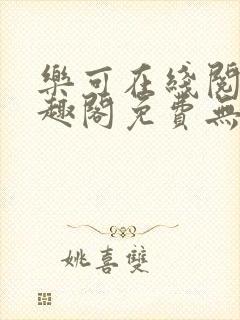 樂可在綫閱
趣閣免費無
姚喜雙